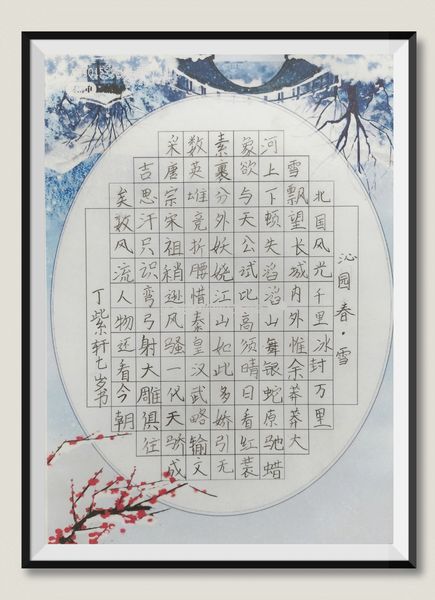 沁园春·雪
北国风光千里冰封万里
雪飘望长城内外惟余莽莽大
河上下顿失滔滔山舞银蛇原驰蜡
象欲与天公试比高须晴日看红装
素裹分外妖娆江山如此多娇引无
数英雄竞折腰惜秦皇汉武略输文
采唐宗宋祖稍逊风骚一代天骄成
吉思汗只识弯弓射大雕俱往
矣数风流人物还看今朝
丁紫轩七岁书